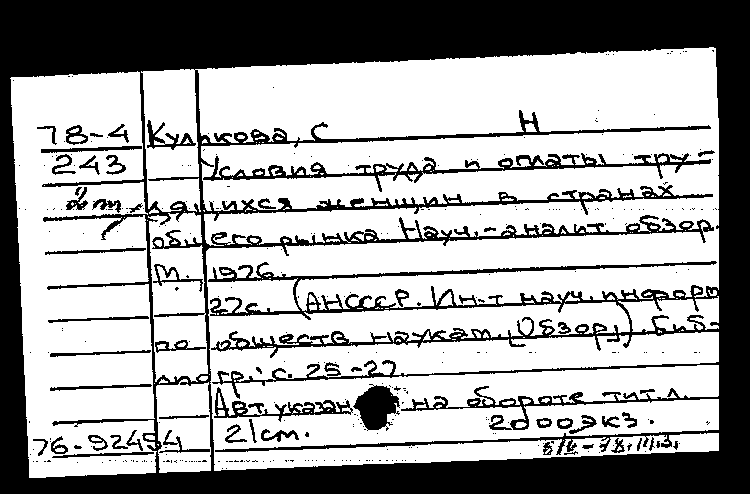 78-4 Куликова, С Н
243 Условия труда и оплаты тру=
2т. дящихся женщин в странах
общего рынка Науч.-аналит. обзор.
М. 1976.
27с. (АНСССР. Ин-т науч. информ
по обществ наукам. [Обзор]). Биб-
лиогр.; с. 25-27.
Авт. указан на обороте тит. л.
21см. 2000экз.
76-92454